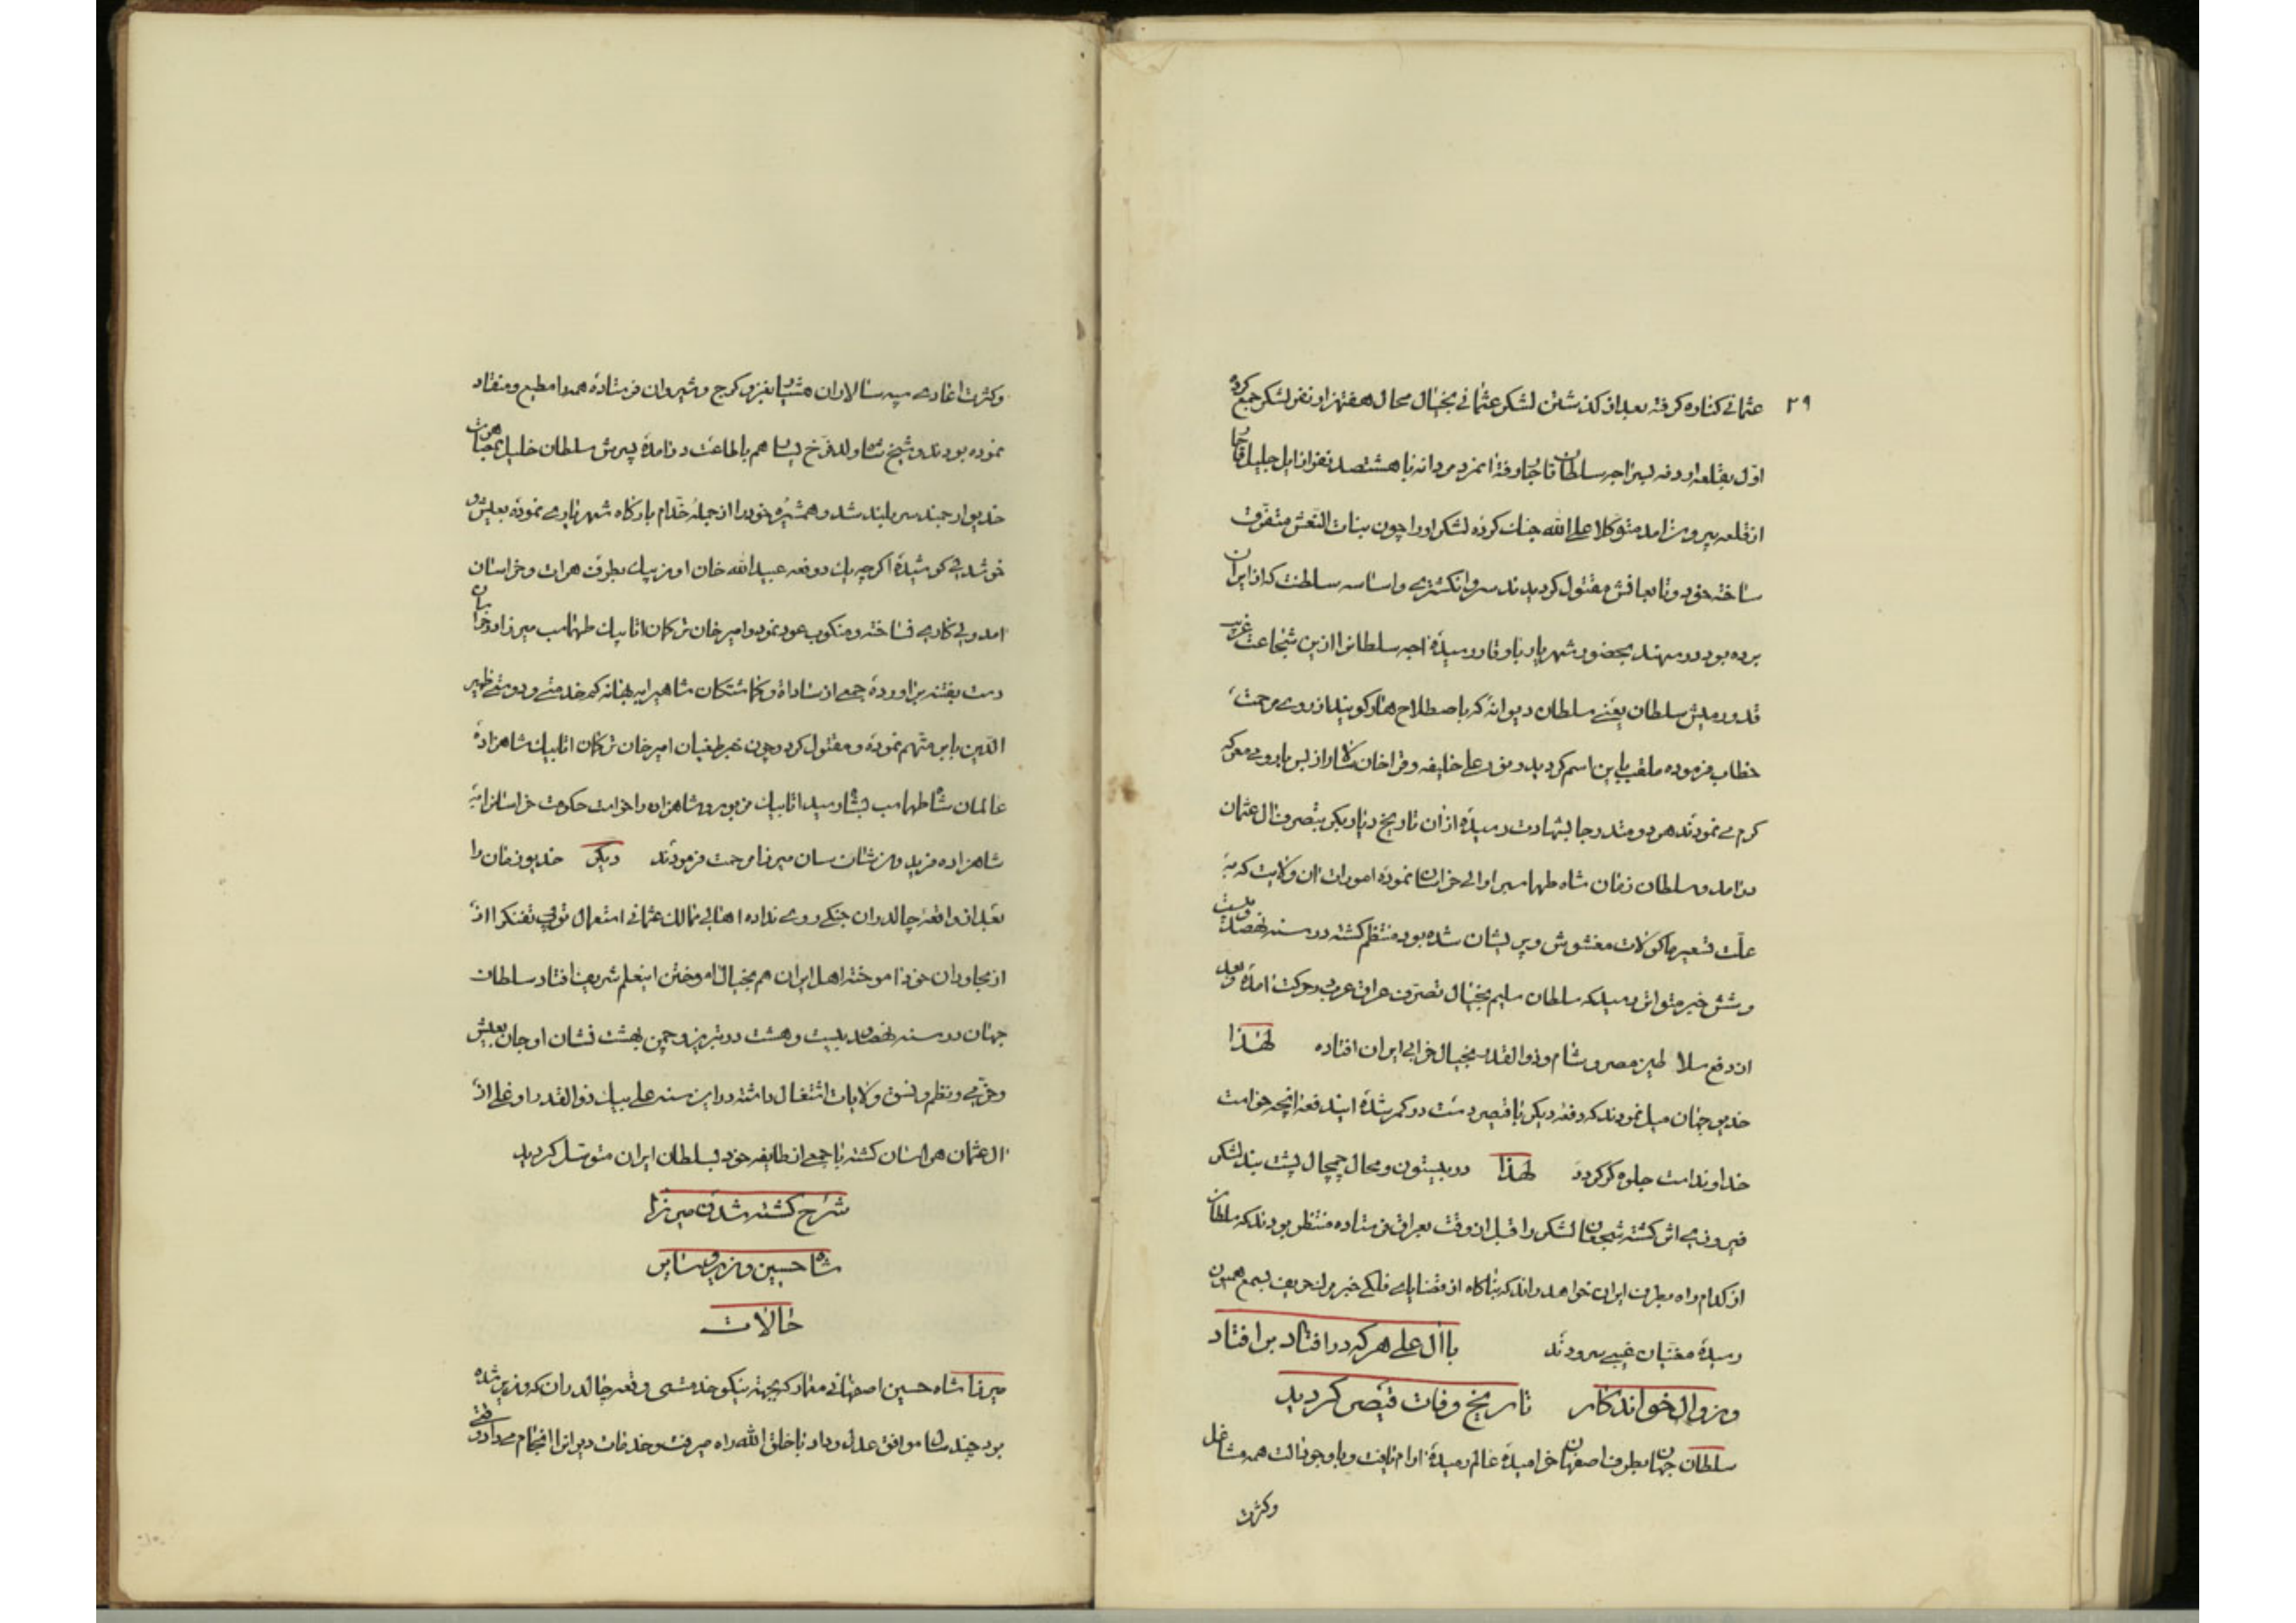 ۲۹
عثمانی کناره کرفته بعد از کذشتن لشکر عثمانی بخیال محال هفتهزار نفر لشکر جمع کرده
اوّل بقلعه ارومه بسر اجه سلطان قاجار رفته انمزد مردانه با هشتصد نفر از ایل جلیل قاجار
از قلعه بیرون امده متوکلا علی الله جنک کرده لشکر او را چون بنات النعش متفرق
ساخته خود و تابعانش مقتول کردیدند سر و انکشتری و اساسه سلطنت که از ایران
برده بود در سهند بحضور شهریار با وقار رسیده اجه سلطانرا ازین شجاعت غریب
قدورمیش سلطان یعنی سلطان دیوانه که باصطلاح هنار کویند از روی مرحمت
خطاب فرموده ملقب باین اسم کردید و نور علی خلیفه و قراخان استاجلو از بس باروی معرکه
کرم می نمودند هر دو متدرجا بشهادت رسیده از ان تاریخ دیاربکر بتصرف ال عثمان
درامد و سلطان زمان شاه طهماسب را والی خراسان نموده امورات ان ولایت که به
علّت تسعیر ماکولات مغشوش و پریشان شده بود منتظم کشته در سنه نهصد و بیست
و شش خبر متواتر رسید که سلطان سلیم بخیال تصرف عراق عرب بحرکت امده و بعد
از دفع سلاطین مصر و شام و ذوالقدر بخیال خرابی ایران افتاده لهذا
خدیو جهان میل نمودند که دفعه دیکر با قیصر دست در کمر شده ایندفعه انچه خواست
خداوند است جلوه کر کردد لهذا در بیستون و محال چمچال پشت بند لشکر
فیروزی اثر کشته شجعان لشکر را قبل از وقت بعراق فرستاده منتظر بودند که سلطان
از کدام راه بطرف ایران خواهد راند که بناکاه از قضایای فلکی خبر مرک حریف بسمع همیون
رسیده مغنیان غیبی سرودند با ال علی هر که در افتاد بر افتاد
و زوال خواندکار تاریخ وفات قیصر کردید
سلطان جهان بطرف اصفهان خرامیده عالم رمیده ارام یافت و با وجود انست همه مشاغل
وکثرت
وکثرت اغادی سپه سالاران هشیار بغزو کرج و شیروان فرستاده همه را مطیع و منقاد
نموده بودند و شیخ شاه ولد فرّخ یسار هم باطاعت درامده پسرش سلطان خلیل بمصاهرت
خدیو ارجمند سربلند شد و همشیره خود را از جمله خدّام بارکاه شهریاری نموده بعیش و
خوشدلی کوشیده اکرچه یک دو دفعه عبید الله خان اوزبیک بطرف هرات و خراسان
امد ولی کاری نساخته و منکوب عود نمود و امیر خان ترکمان اتابیک طهماسب میرزا در خراسان
دست بفتنه براورده جمعی از سادات و کماشتکان شاهی را به بهانه کم خدمتی و دوستی ظهیر
الدّین بابر متّهم نموده و مقتول کرد و چون خبر طغیان امیر خان ترکمان اتابیک شاهزاده
عالمان شاه طهماسب بشاه رسید اتابیک مزبور و شاهزاده را خواست حکومت خراسانرا به
شاهزاده فرید و زشان سان میرزا مرحمت فرمودند دیکر خدیو زمان را
بعد از واقعه چالدران جنکی روی نداده اهالی ممالک عثمانی استعمال توپ تفنک را از
از مجاوران خود اموخته اهل ایران هم بخیال اموختن اینعلم شریف افتاد سلطان
جهان در سنه نهصد و بیست و هشت در تبریز و چمن بهشت نشان اوجان بعیش
و خرّمی و نظم و نسق ولایات اشتغال داشته در این سنه علی بیک ذوالقدر اوغلی از
ال عثمان هراسان کشته با جمعی از طایفه خود بسلطان ایران متوسّل کردید
شرح کشته شدن میرزا
شاه حسین وزیر و سایر
حالات
میرزا شاه حسین اصفهانی معمار که بجهته نیکو خدمتی وقعه چالدران که وزیر شده
بود چند سال موافق عدل و داد با خلق الله راه میرفت و خدمات دیوانرا انجام میداد وقتی